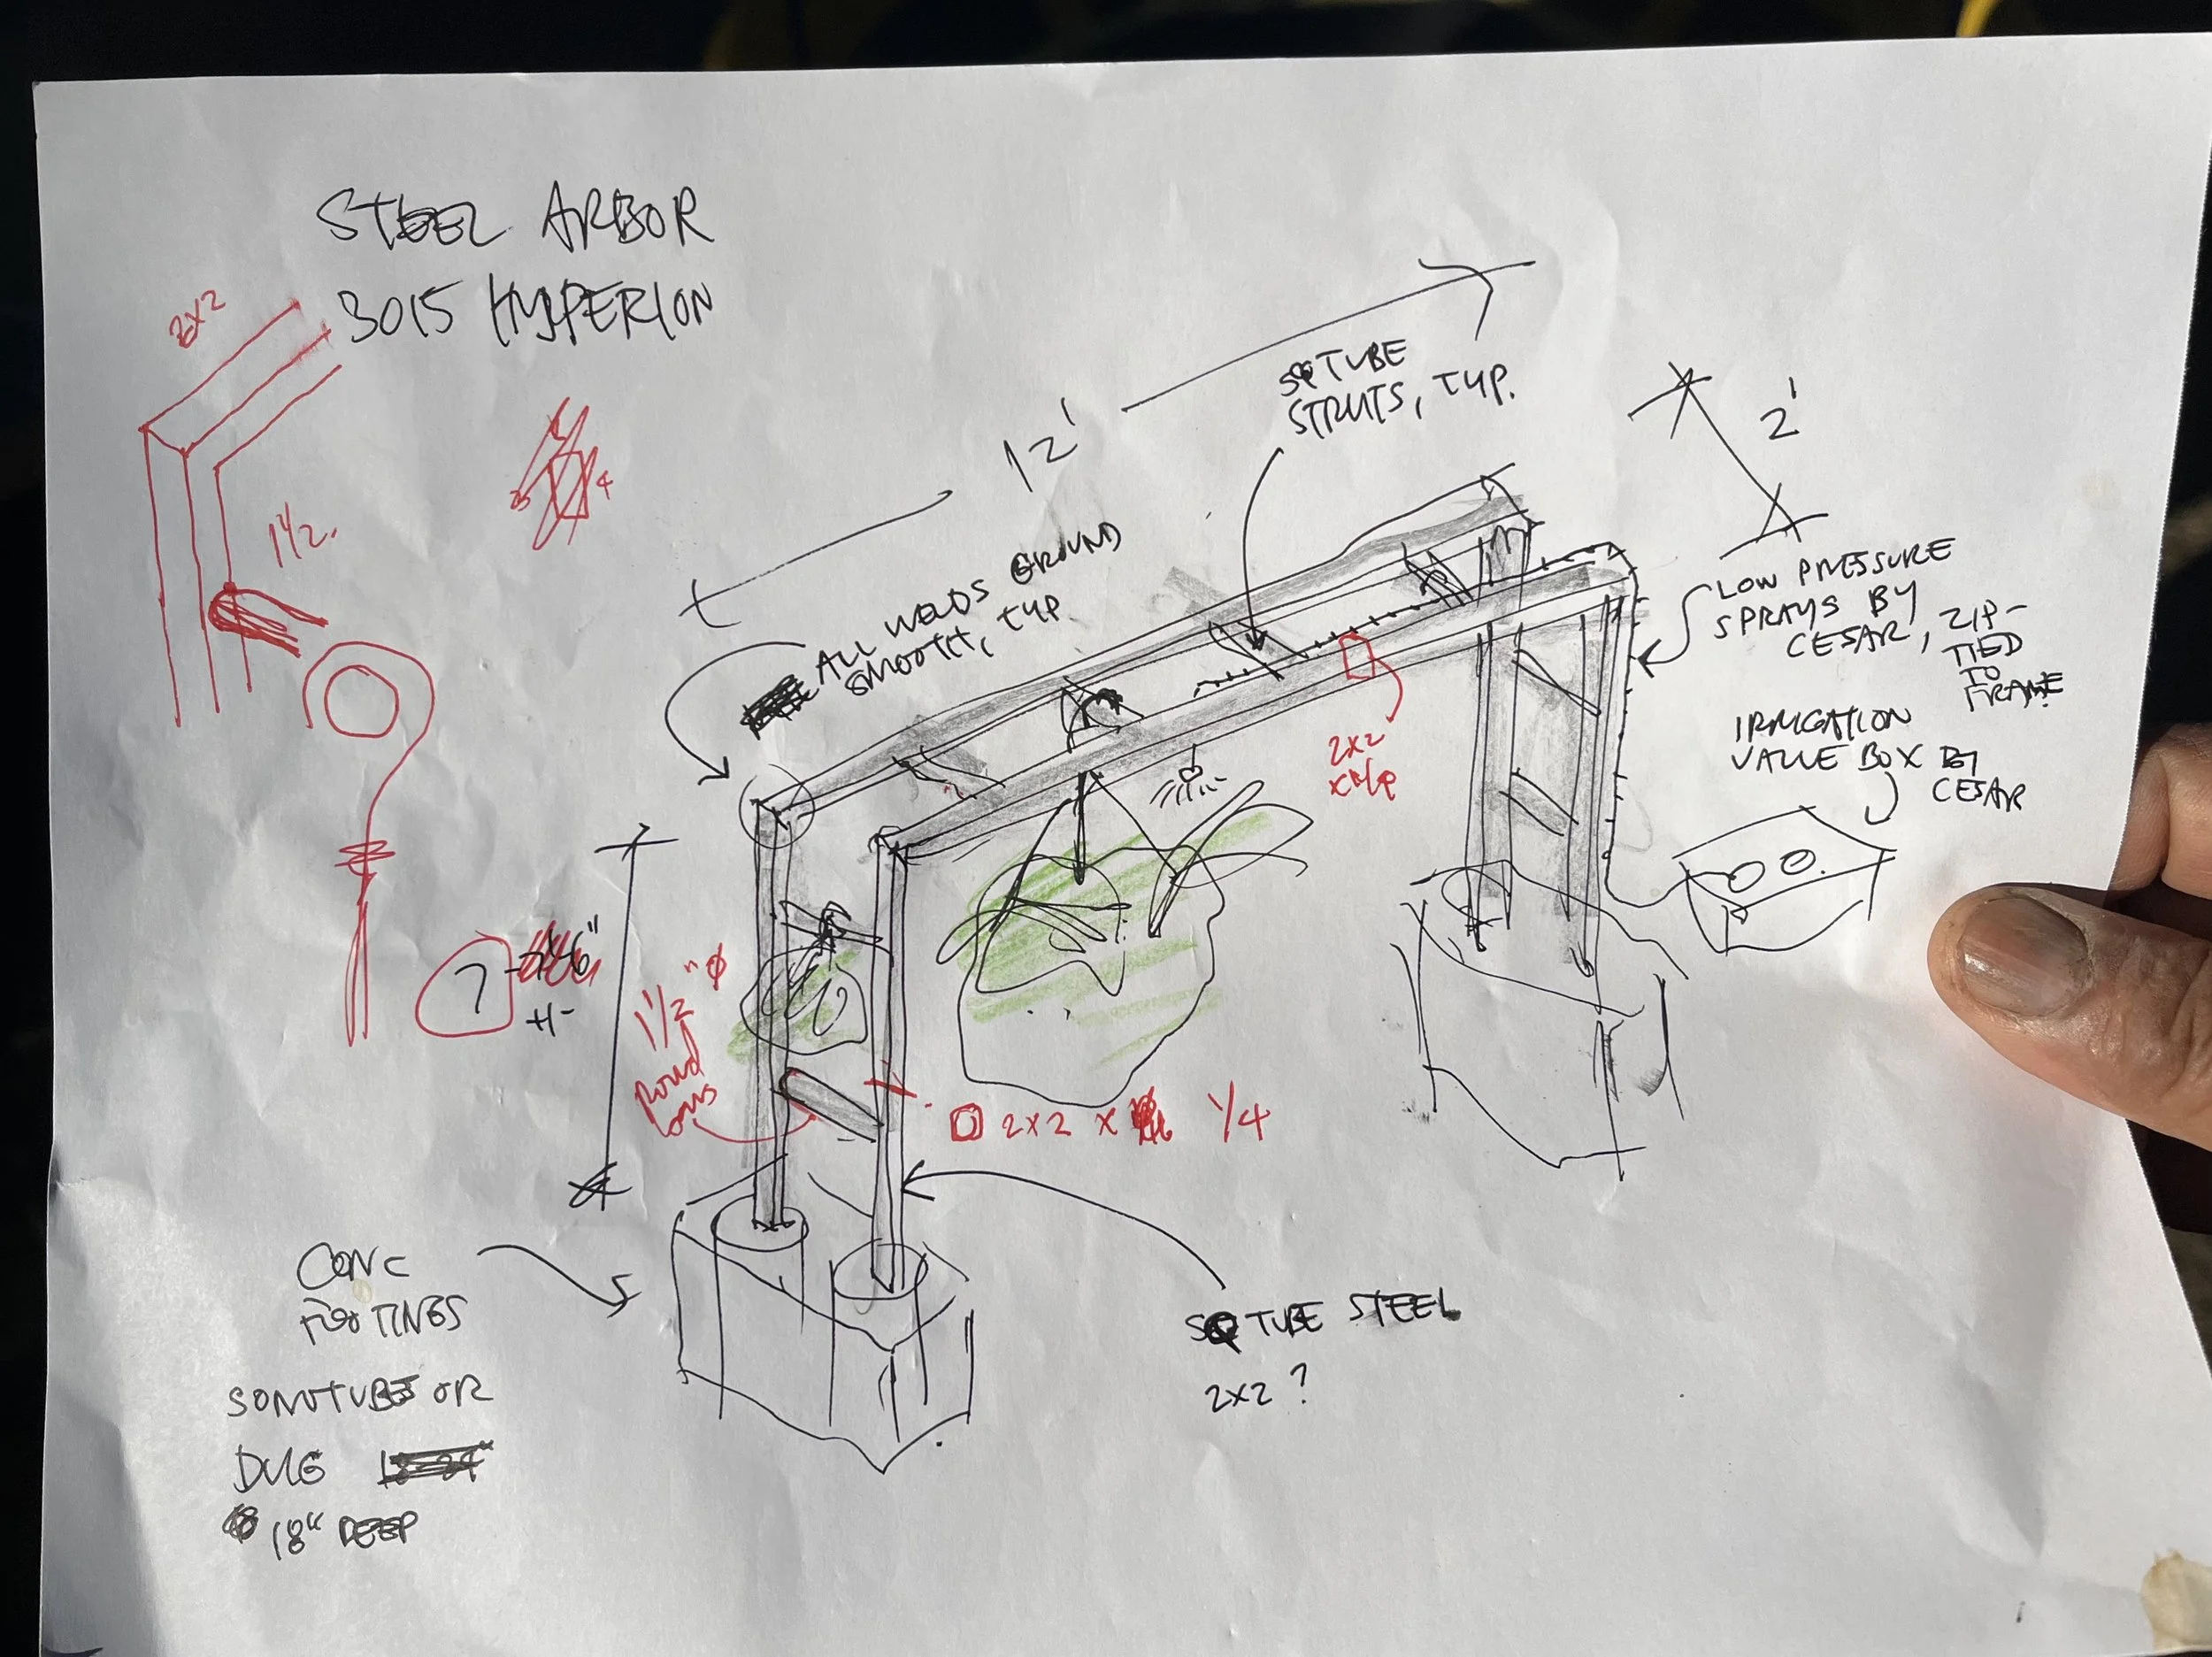 STEEL ARBOR
3015 HYPERION
2X2
1 1/2
12'
SQ TUBE
STRUTS, TYP.
2'
ALL WELDS GROUND
SMOOTH, TYP.
LOW PRESSURE
SPRAYS BY
CESAR, ZIP-
TIED
TO
FRAME
IRRIGATION
VALVE BOX BY
CESAR
2x2
x 1/4
7
6"
+/-
1 1/2" Ø
Round
2x2 x 1/4
CONC
FOOTINGS
SONOTUBES OR
DUG
18" DEEP
SQ TUBE STEEL
2x2?